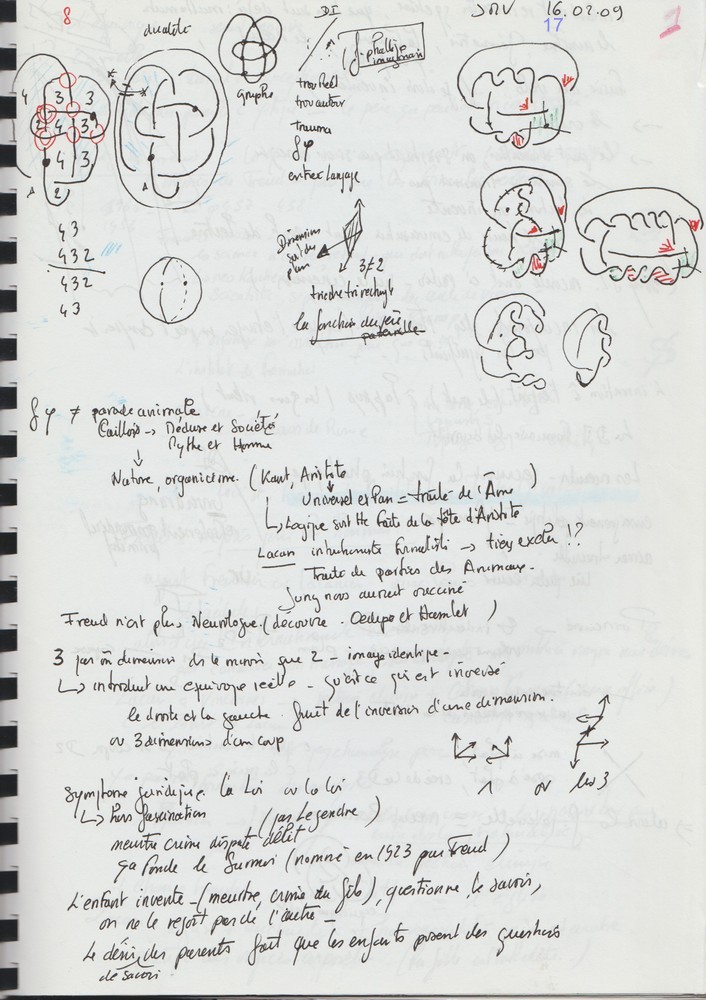 8
dualité
DI
JMV 16.02.09
17
1
graphe
trou réel
trou autour
trauma
entrer langage
Dimension
sur
plan
3≠2
trièdre trirectangle
la fonction du père
paternelle
4 3 3
4 3
4 3
2
A
A
43
432
432
43
≠ parade animale
Caillois → Méduse et Société
Mythe et Homme
Nature, organicisme. (Kant, Aristote
Universel et Pan = traité de l'Âme )
Logique sur la tête d'Aristote
Lacan → !?
Traité de parties des Animaux.
Jung nous aurait
Freud n'est plus Neurologue. (découvre Oedipe et Hamlet )
3 dimension de le miroir que 2 – image identique –
introduit une équivoque réelle – qu'est ce qui est inversé
la droite et la gauche. fruit de l'inversion d'une dimension.
ou 3 dimensions d'un coup
1 ou les 3
Symptome juridique la Loi ou la loi
Hors fascination (par Legendre )
meurtre crime délit
ça fonde le Surmoi (nommé en 1923 par Freud )
L'enfant invente – (meurtre, crime du fils), questionne, le savoir,
on ne le reçoit pas de l'autre –
Le désir des parents fait que les enfants posent des questions
de savoir